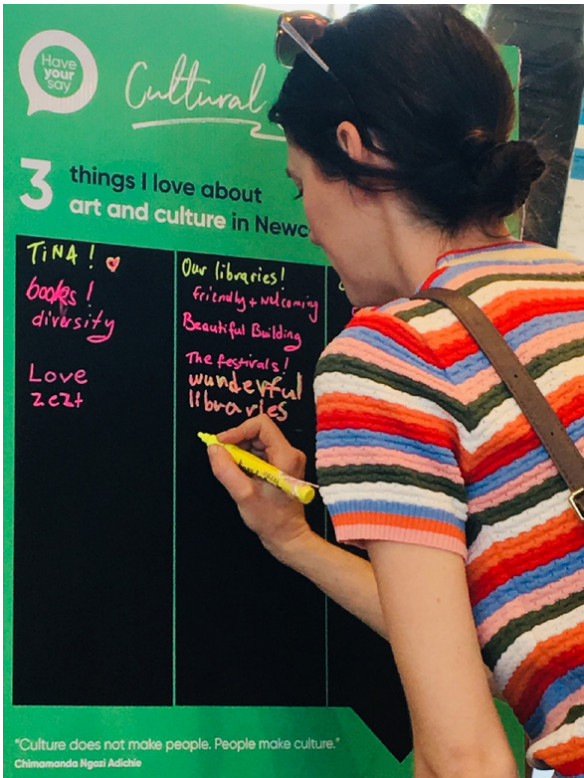 Have
your
say
Cultural
3 things I love about
art and culture in Newc
TiNA!
books!
diversity
Love
zezt
Our libraries!
friendly + welcoming
Beautiful Building
The festivals!
wunderful
libraries
“Culture does not make people. People make culture.”
Chimamanda Ngozi Adichie